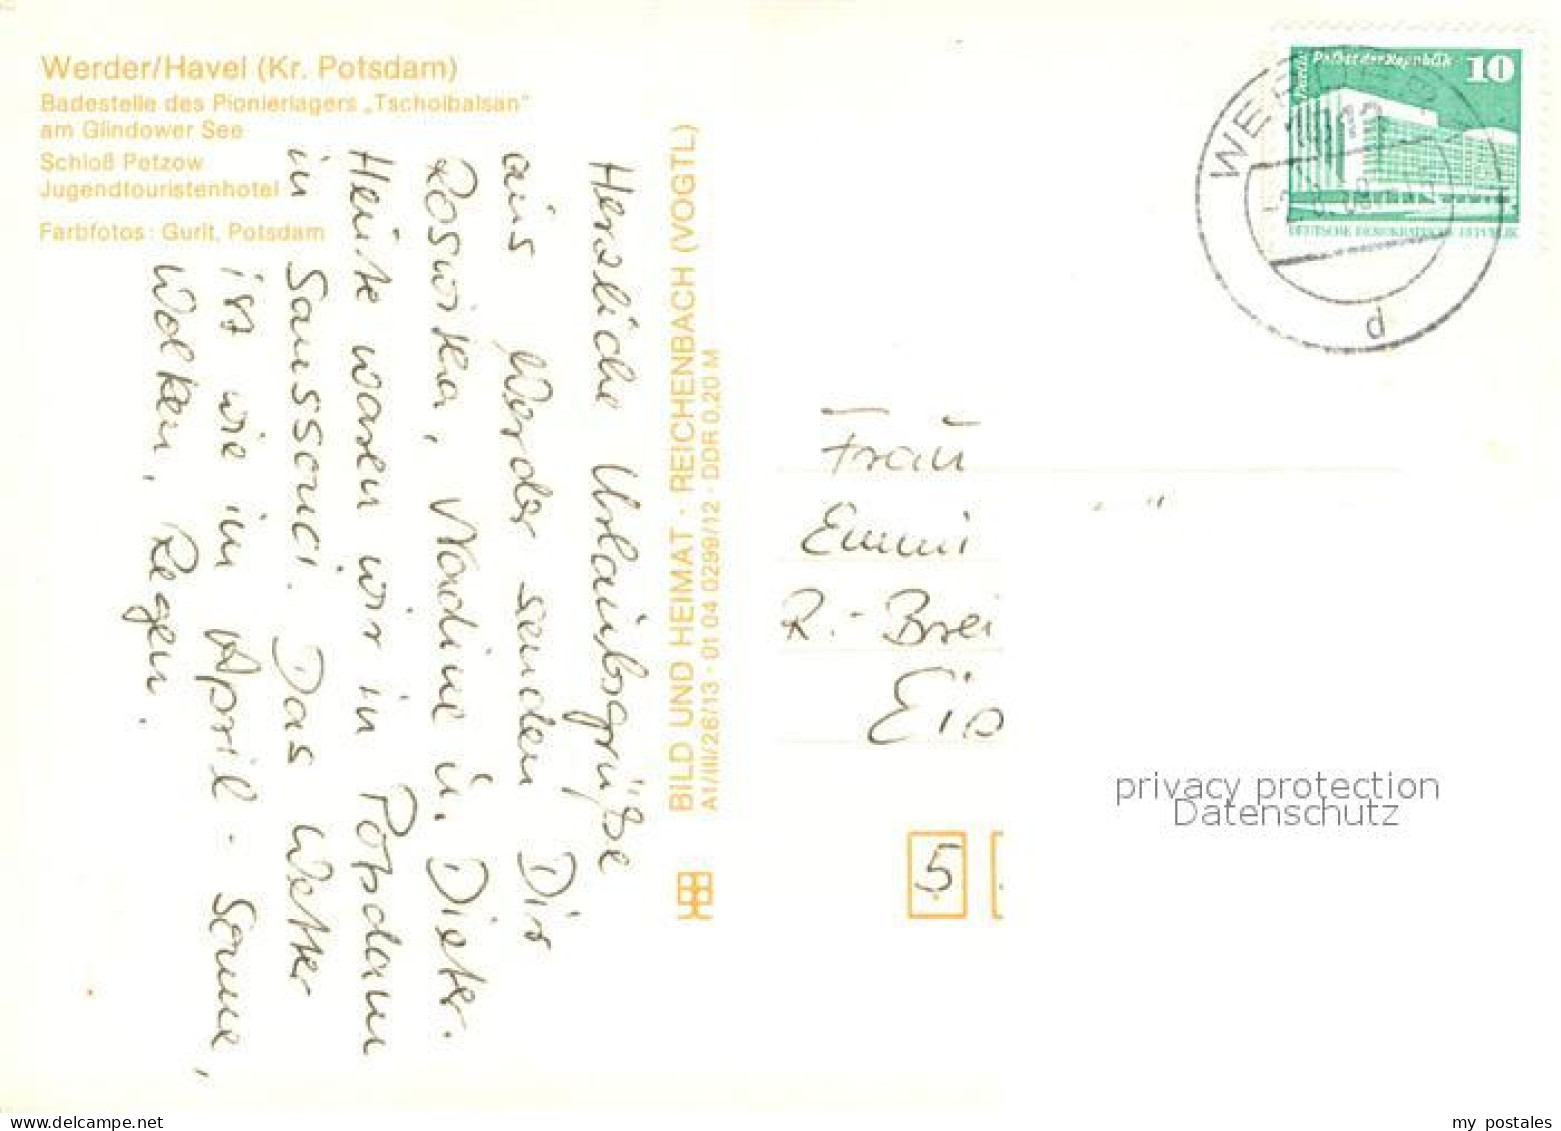 Werder/Havel (Kr. Potsdam)
Badestelle des Pionierlagers „Tschoibalsan"
am Glindower See
Schloß Petzow
Jugendtouristenhotel
Farbfotos: Gurlt, Potsdam
Herzliche Urlaubsgrüße
aus Werder senden Dir
Roswitha, Nadine u. Dieter.
Heute waren wir in Potsdam
in Sanssouci. Das Wetter
ist wie im April - Sonne,
Wolken, Regen.
BILD UND HEIMAT · REICHENBACH (VOGTL)
A1/III/26/13 · 01 04 0299/12 · DDR 0,20 M
Berlin Palast der Republik 10
DEUTSCHE DEMOKRATISCHE REPUBLIK
WERDER
1512
d
Frau
Emmi
R.-Brei
Eis
5
privacy protection
Datenschutz
my postales